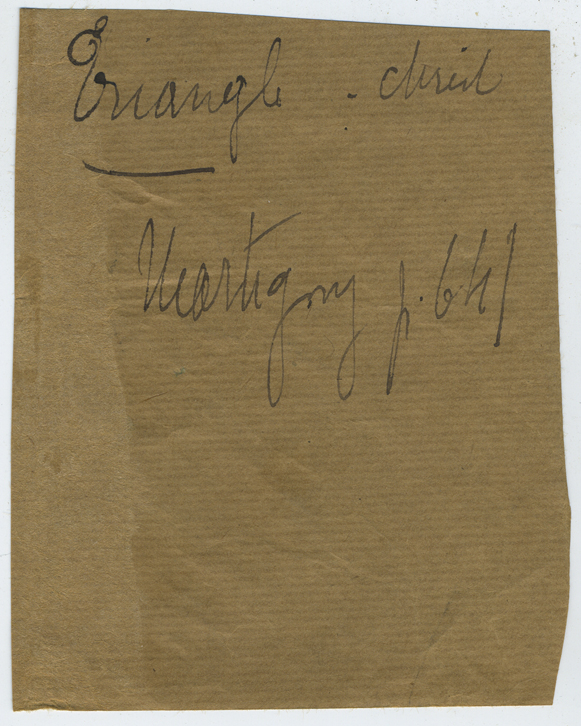 Triangle - chrét
Martigny p. 641